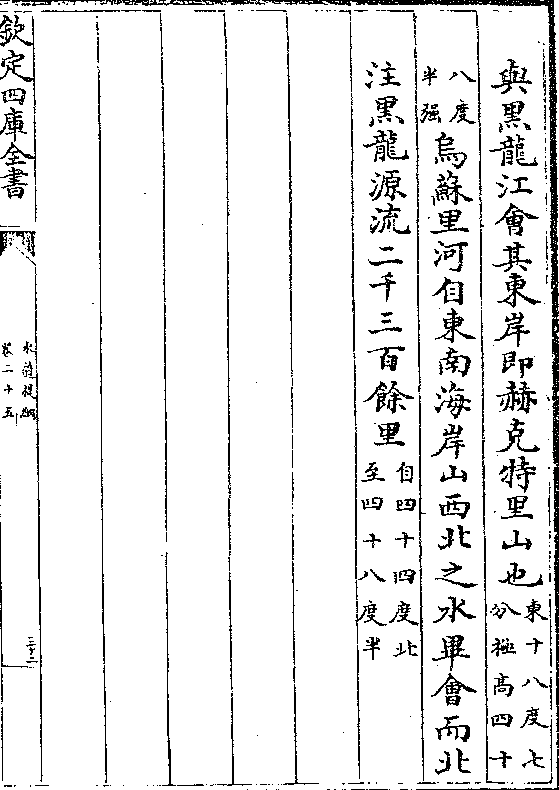 與黑龍江會其東岸即赫克特里山也東十八度七分極高四十
八度半强烏蘇里河自東南海岸山西北之水畢會而北
注黑龍源流二千三百餘里自四十四度北至四十八度半
欽定四庫全書
水道提綱
卷二十五
三十二